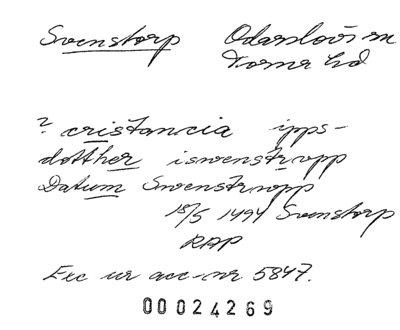 Svenstorp Odarslövs sn
Torna hd
? cristancia ipps-
dotther isvenstropp
Datum Svenstropp
18/5 1494 Svenstorp
RAP
Exc ur acc-nr 5847.
00024269